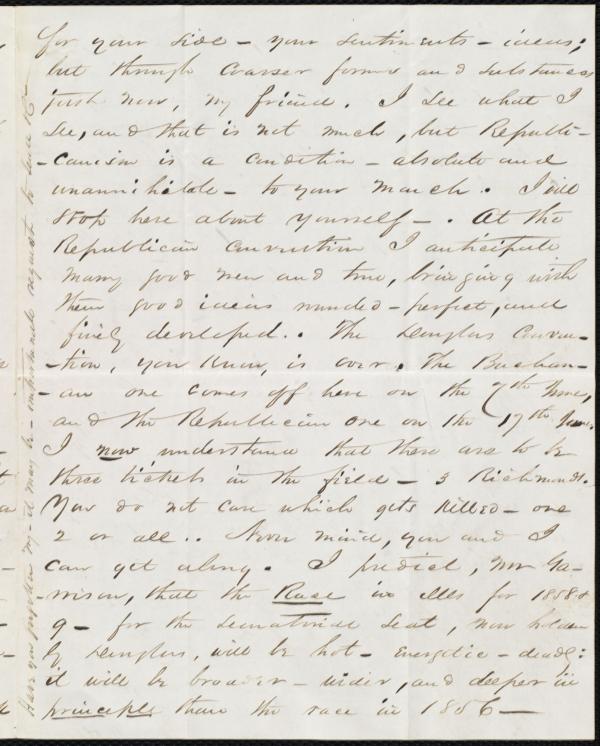 for your side – your sentiments – ideas;
but through coarser forms and substances
just now, my friend. I see what I
see, and that is not much, but Republi-
-canism is a condition – absolute and
unannihilable – to your march. I will
stop here about yourself –. At the
Republican convention I anticipate
many good men and true, bringing with
them good ideas rounded – perfect, and
finely developed.. The Douglas conven-
-tion, you know, is over. The Buchan-
-an one comes off here on the 7th June,
and the Republican one on the 17th June.
I now understand that there are to be
three tickets in the field – 3 Richmonds.
You do not care which gets killed – one
2 or all.. Never mind, you and I
can get along. I predict, Mr Ga-
-rrison, that the Race in Ills for 1858 &
9 – for the senatorial seat, now holden
by Douglas, will be hot – energetic – deadly:
it will be broader – wider, and deeper in
principle than the race in 1856 –
Have you forgotten my – it may be – importunate request to